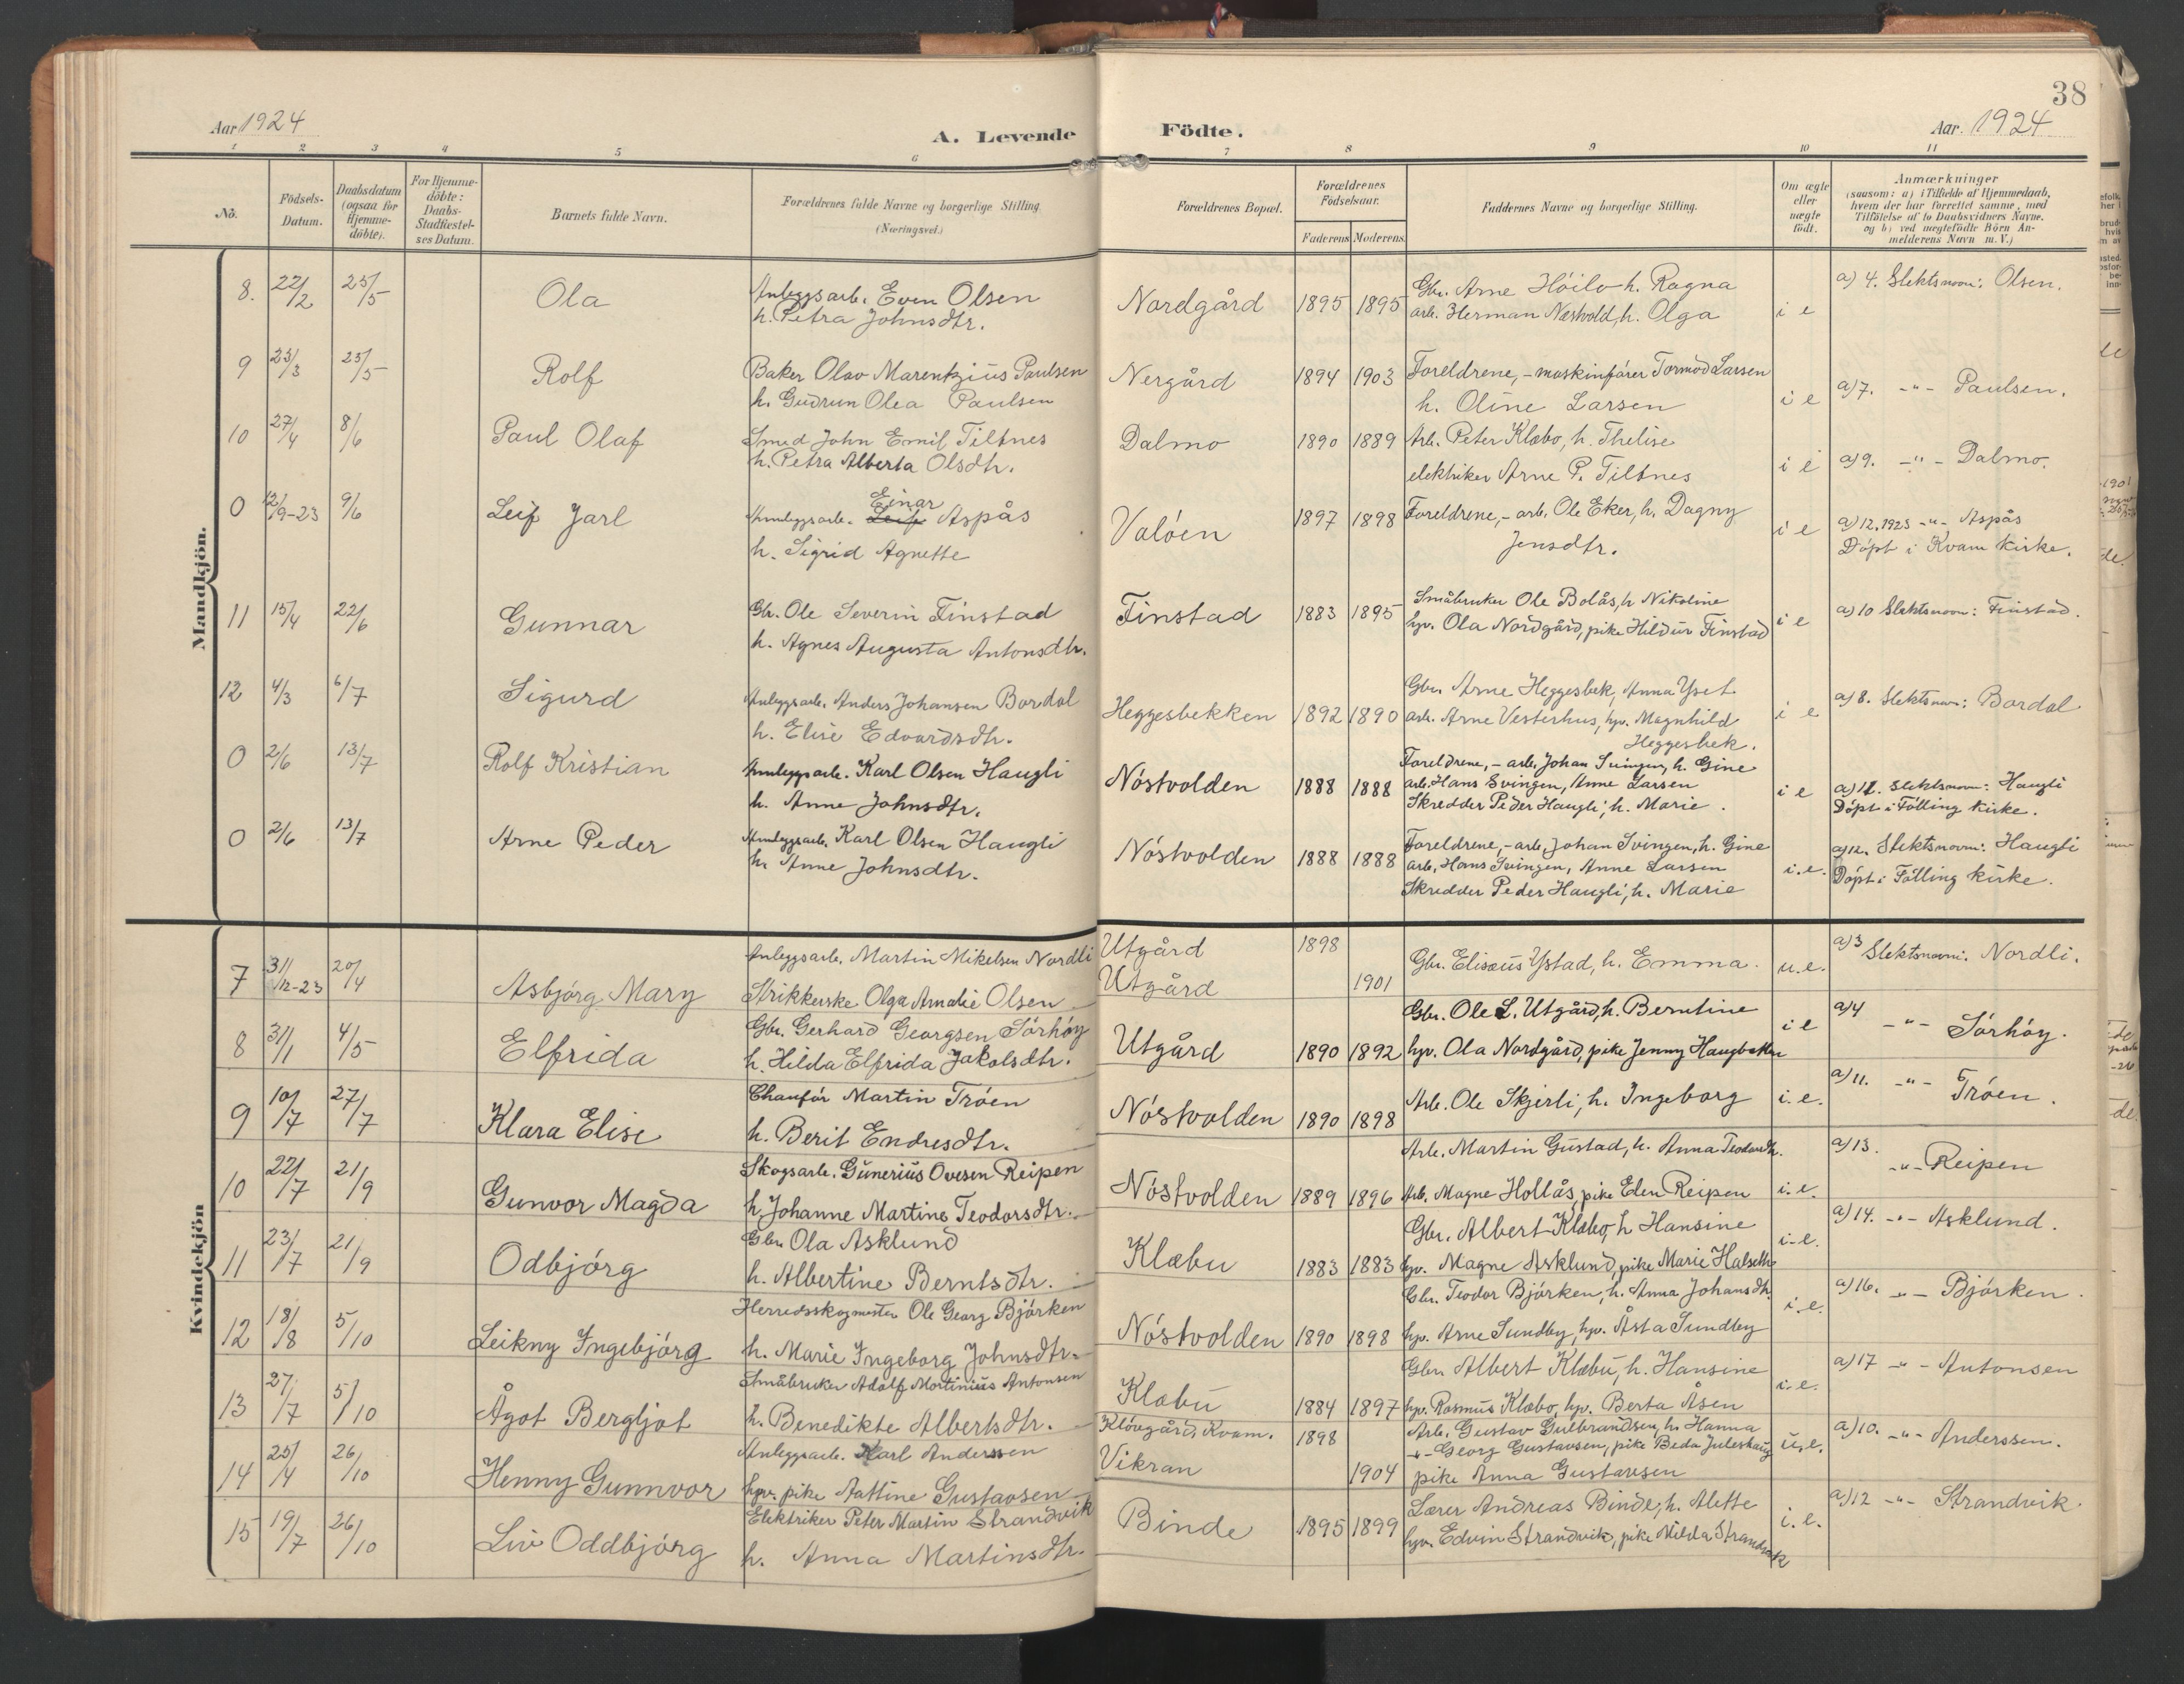 38
Aar 1924
A. Levende
Födte.
Aar. 1924
1 2 3 4 5 6 7 8 9 10 11
No.
Födsels-Datum.
Daabsdatum (ogsaa for Hjemme-döbte).
For Hjemme-döbte: Daabs-Stadfæstel-ses Datum.
Barnets fulde Navn.
Forældrenes fulde Navne og borgerlige Stilling (Næringsvei.)
Forældrenes Bopæl.
Forældrenes Födselsaar.
Faderens Moderens
Faddernes Navne og borgerlige Stilling.
Om ægte eller uægte födt.
Anmærkninger
(saasom: a) i Tilfælde af Hjemmedaab,
hvem der har forrettet samme, med
Tilföielse af to Daabsvidners Navne.
og b) ved uægtefödte Börn An-
melderens Navn m. V.)
Mandkjön.
8. 22/2 25/5 Ola Anleggsarb. Even Olsen Nordgård 1895 1895 Gbr. Arne Höilo h. Ragna i e a) 4. Slektsnavn: Olsen.
h. Petra Johnsdtr. arb. Herman Næstvold, h. Olga
9 23/3 25/5 Rolf Baker Olav Marentzius Paulsen Nergård 1894 1903 Foreldrene, - maskinfører Tormod Larsen i e a) 7. -"- Paulsen.
h. Gudrun Olea Paulsen h. Oline Larsen
10 27/4 8/6 Paul Olaf Smed John Emil Tiltnes Dalmo 1890 1889 Arb. Peter Klæbo, h. Thelise i e a) 9. -"- Dalmo.
h. Petra Alberta Olsdtr. elektriker Arne P. Tiltnes
0 12/9-23 9/6 Leif Jarl Anleggsarb. Leif Einar Aspås Valöen 1897 1898 Foreldrene, - arb. Ole Eker, h. Dagny i e a) 12, 1923 -"- Aspås
h. Sigrid Agnette Jensdtr. Döpt i Kvam kirke.
11 15/4 22/6 Gunnar Gbr. Ole Severin Finstad Finstad 1883 1895 Småbruker Ole Bolås, h Nikoline i e a) 10 Slektsnavn: Finstad.
h. Agnes Augusta Antonsdtr. hgv. Ola Nordgård, pike Hildur Finstad
12 4/3 6/7 Sigurd Anleggsarb. Anders Johansen Bardal Heggesbekken 1892 1890 Gbr. Arne Heggesbek, Anna Yset i e a) 8. Slektsnavn: Bardal
h. Elise Edvardsdtr. arb. Arne Vesterhus, hgv. Magnhild
Heggesbek.
0 2/6 13/7 Rolf Kristian Anleggsarb. Karl Olsen Haugli Nöstvolden 1888 1888 Foreldrene, - arb. Johan Svingen, h. Gine i e a) 11. Slektsnavn: Haugli
h. Anne Johnsdtr. arb. Hans Svingen, Anne Larsen Döpt i Fölling kirke.
Skredder Peder Haugli, h. Marie.
0 2/6 13/7 Arne Peder Anleggsarb. Karl Olsen Haugli Nöstvolden 1888 1888 Foreldrene, - arb. Johan Svingen, h. Gine i.e. a) 12. Slektsnavn: Haugli
h. Anne Johnsdtr. arb. Hans Svingen, Anne Larsen Döpt i Fölling kirke.
Skredder Peder Haugli, h. Marie
Kvindekjön
7 31/12-23 20/4 Asbjörg Mary Anleggsarb. Martin Mikelsen Nordli Utgård 1898 Gbr. Elisæus Ystad, h. Emma. u.e. a) 3 Slektsnavn: Nordli.
Strikkerske Olga Amalie Olsen Utgård 1901
8 31/1 4/5 Elfrida Gbr. Gerhard Georgsen Sörhöy Utgård 1890 1892 Gbr. Ole L. Utgård, h. Berntine i e a) 4 -"- Sörhöy.
h. Hilda Elfrida Jakobsdtr. hgv. Ola Nordgård, pike Jenny Haugbakken
9 10/7 27/7 Klara Elise Chauför Martin Tröen Nöstvolden 1890 1898 Arb. Ole Skjerli, h. Ingeborg i.e. a) 11. -"- Tröen.
h. Berit Endresdtr.
10 22/7 21/9 Gunvor Magda Skogsarb. Gunerius Ovesen Reipen Nöstvolden 1889 1896 Arb. Martin Gustad, h. Anna Teodorsdtr. i.e. a) 13. -"- Reipen
h. Johanne Martine Teodorsdtr. Arb. Magne Hollås, pike Elen Reipen
11 23/7 21/9 Odbjörg Gbr. Ola Asklund Klæbu 1883 1883 Gbr. Albert Klæbo, h Hansine i-e. a) 14. -"- Asklund.
h. Albertine Berntsdtr. hgv. Magne Asklund, pike Marie Halseth
12 18/8 5/10 Leikny Ingebjörg Herredsskogmester Ole Georg Björken Nöstvolden 1890 1898 Gbr. Teodor Björken, h. Anna Johansdtr. i.e. a) 16. -"- Björken.
h. Marie Ingeborg Johnsdtr. hgv. Arne Sundby, hgv. Åsta Sundby
13 27/7 5/10 Ågot Bergljot Småbruker Adolf Mortinius Antonsen Klæbu 1884 1897 Gbr. Albert Klæbu, h. Hansine i.e. a) 17 -"- Antonsen
h. Benedikte Albertsdtr. hgv. Rasmus Klæbo, hgv. Berta Åsen
14 25/4 26/10 Henny Gunnvor Anleggsarb. Karl Anderssen Klövgård, Kvam. 1898 Arb. Gustav Gulbrandsen, h. Hanna u.e. a) 10. -"- Anderssen.
hgv. pike Aattine Gustavsen Vikran 1904 -"- Georg Gustavsen, pike Beda Juleshaug
pike Anna Gustavsen
15 19/7 26/10 Liv Oddbjörg Elektriker Peter Martin Strandvik Binde 1895 1899 Lærer Andreas Binde, h. Alette i.e. a) 12 -"- Strandvik.
h. Anna Martinsdtr. hgv. Edvin Strandvik, pike Hilda Strandvik